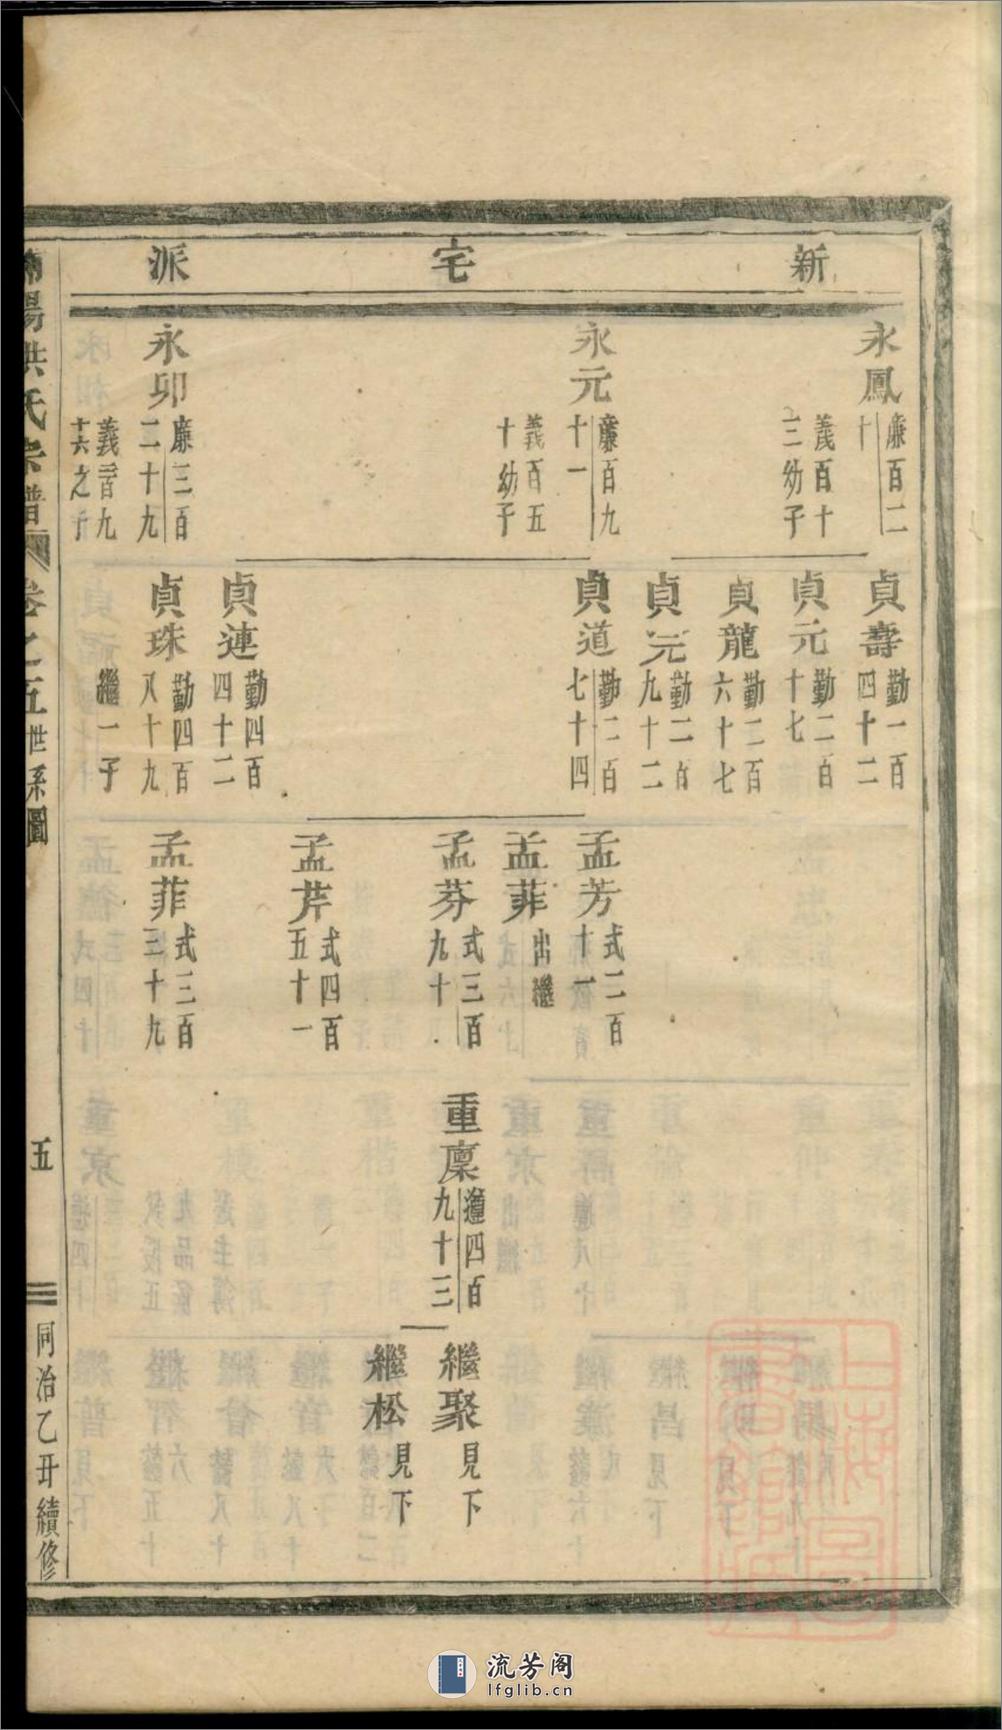 新宅派
永鳳
廉百二
十
義百十
三幼子
永元
廉百九
十一
義百五
十幼子
永卯
廉三百
二十九
義三百九
十六之子
貞壽
勤一百
四十二
貞元
勤二百
十七
貞龍
勤二百
六十七
貞元
勤二百
九十二
貞道
勤二百
七十四
貞連
勤四百
四十二
貞珠
勤四百
八十九
繼一子
孟芳
式二百
十一
孟菲
出繼
孟芬
式三百
九十
孟芹
式四百
五十一
孟菲
式三百
三十九
重廩
四百
九十三
繼聚
見下
繼松
見下
陽洪氏宗譜
卷之五
世系圖
五
同治乙丑續修
上海圖書館藏
流芳阁
lfglib.cn